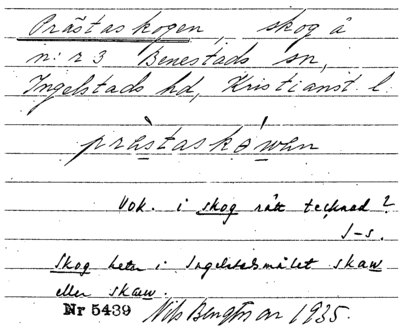 Prästaskogen, skog å
n:r 3 Benestads sn,
Ingelstads hd, Kristianst. l.
prästaskǝwan
Vok. i skog rätt tecknad?
J-s.
Skog heter i Ingelstadsmålet skaw
eller skæw.
Nr 5439 Nils Bengtsson 1935.